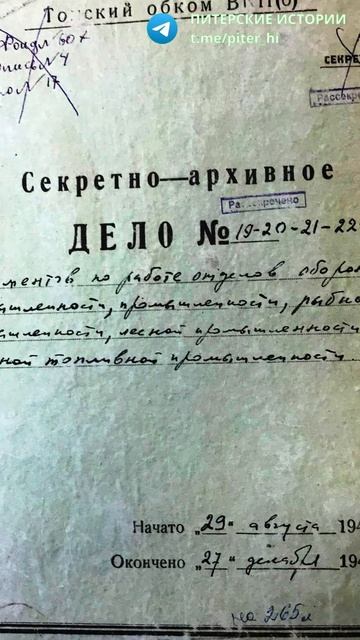 Томский обком ВКП(б)
ПИТЕРСКИЕ ИСТОРИИ
t.me/piter_hi
Фонд 607
Опись №4
17
СЕКРЕ
Рассекре
Секретно—архивное
Рассекречено
ДЕЛО № 19-20-21-22
ментов по работе отделов оборон
ышленности, промышленности, рыбно
ышленности, лесной промышленности
ной топливной промышленности.
Начато „29" августа 194
Окончено „27" декабря 194
на 265 л